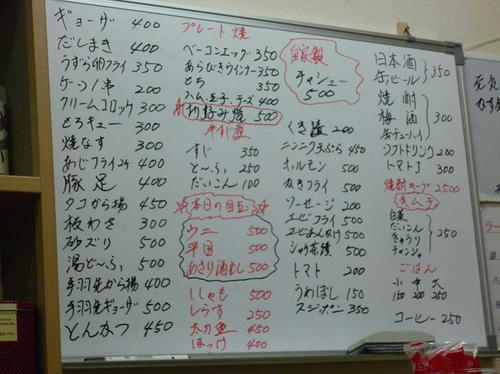 ギョーザ 400
だしまき 400
うずら卵フライ 350
クリームコロッケ 300
とろキュー 300
焼なす 300
あじフライ2ケ 400
豚足 400
タコから揚 450
板わさ 300
砂ズリ 500
湯どーふ 500
手羽先から揚 400
手羽先ギョーザ 500
とんかつ 450
プレート焼
ベーコンエッグ 350
あらびきウインナー 350
とち 350
ハム、玉子、チーズ 400
お好み焼 500
すじ 350
とーふ 250
だいこん 100
本日の目玉
ウニ 500
平貝 500
あさり酒むし 500
ししゃも 500
しらす 250
太刀魚 450
ほっけ 400
自家製
チャシュー
500
くき漬 200
ニンニク天ぷら 450
ホルモン 500
カキフライ 500
ソーセージ 200
エビフライ 500
シャケ茶漬 500
トマト 200
うめぼし 150
スジポン 350
日本酒
缶ビール 350
焼酎
梅酒
缶チューハイ 300
ソフトドリンク 200
トマトJ 300
焼酎キープ 2500
キムチ
白菜
だいこん
きゅうり
チャンジャ
250
ごはん
小 中 大
150 200 250
コーヒー 250